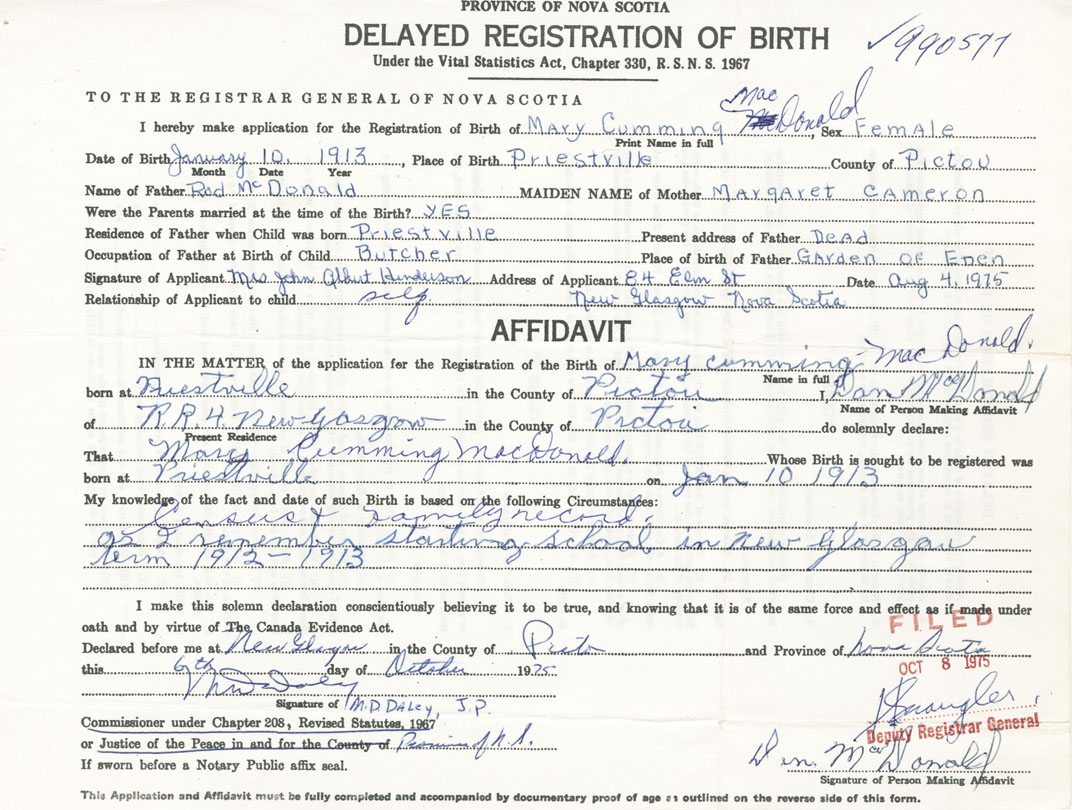 PROVINCE OF NOVA SCOTIA
DELAYED REGISTRATION OF BIRTH
√990577
Under the Vital Statistics Act, Chapter 330, R. S. N. S. 1967
TO THE REGISTRAR GENERAL OF NOVA SCOTIA
I hereby make application for the Registration of Birth of Mary Cumming MacDonald, Sex Female
Print Name in full
Date of Birth January 10, 1913, Place of Birth Priestville County of Pictou
Month Date Year
Name of Father Rod McDonald MAIDEN NAME of Mother Margaret Cameron
Were the Parents married at the time of the Birth? YES
Residence of Father when Child was born Priestville Present address of Father Dead
Occupation of Father at Birth of Child Butcher Place of birth of Father Garden of Eden
Signature of Applicant Mrs John Albert Henderson Address of Applicant 84 Elm St Date Aug 4, 1975
Relationship of Applicant to child self New Glasgow Nova Scotia
AFFIDAVIT
IN THE MATTER of the application for the Registration of the Birth of Mary Cumming MacDonald.
Name in full
born at Priestville in the County of Pictou I, Dan MacDonald
Name of Person Making Affidavit
of R.R.4 New Glasgow in the County of Pictou do solemnly declare:
Present Residence
That Mary Cumming MacDonald. Whose Birth is sought to be registered was
born at Priestville on Jan 10 1913
My knowledge of the fact and date of such Birth is based on the following Circumstances:
Census & Family record,
as I remember starting school in New Glasgow
term 1912-1913
I make this solemn declaration conscientiously believing it to be true, and knowing that it is of the same force and effect as if made under
oath and by virtue of The Canada Evidence Act.
FILED
Declared before me at New Glasgow in the County of Picto and Province of Nova Scotia
this 6th day of October 1975
OCT 8 1975
Signature of M.D. DALEY, J.P.
Commissioner under Chapter 208, Revised Statutes, 1967
Deputy Registrar General
or Justice of the Peace in and for the County of Province of N.S.
If sworn before a Notary Public affix seal.
MacDonald
Signature of Person Making Affidavit
This Application and Affidavit must be fully completed and accompanied by documentary proof of age as outlined on the reverse side of this form.